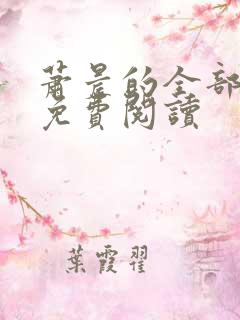 蕭景的全部
免費閱讀
葉霞翟